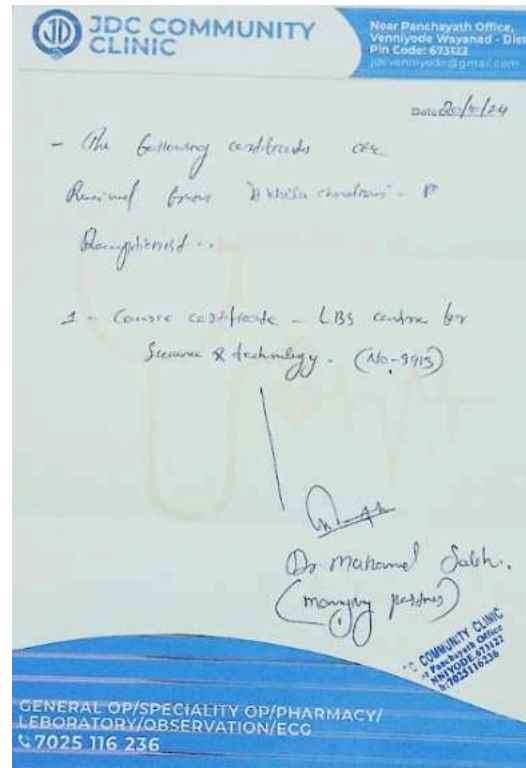 JD
JDC COMMUNITY
CLINIC
Near Panchayath Office,
Venniyode Wayanad - Dist
Pin Code: 673122
Date 20/10/24
- The following certificates are
Received from Akhila chandran - P
Receptionist..
1 - Course certificate - LBS centre for
Science & technology. (No-9913)
Dr. Mahamed Saleh.
(managing partner)
COMMUNITY CLINIC
Panchayath Office
VENNIYODE,673122
7025116236
GENERAL OP/SPECIALITY OP/PHARMACY/
LEBORATORY/OBSERVATION/ECG
7025 116 236